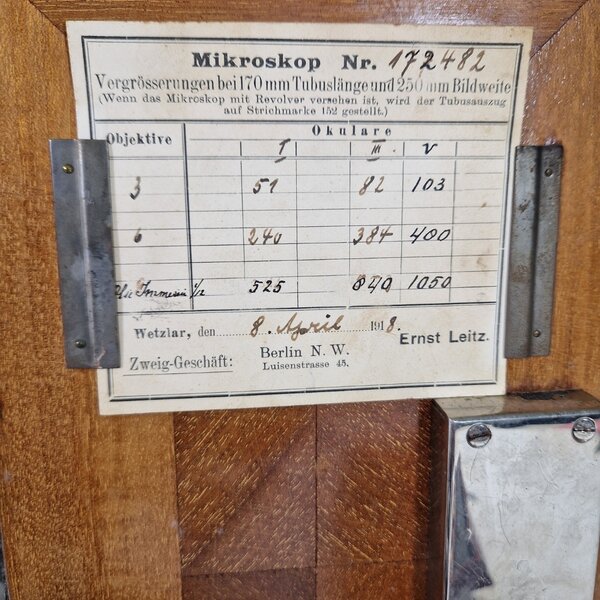 Mikroskop Nr. 172482
Vergrösserungen bei 170 mm Tubuslänge und 250 mm Bildweite
(Wenn das Mikroskop mit Revolver versehen ist, wird der Tubusauszug
auf Strichmarke 152 gestellt.)
Objektive Okulare
I III. V
3 51 82 103
6 240 384 400
Immersion 1/12 525 840 1050
Wetzlar, den 8. April 1918. Ernst Leitz.
Zweig-Geschäft: Berlin N. W.
Luisenstrasse 45.